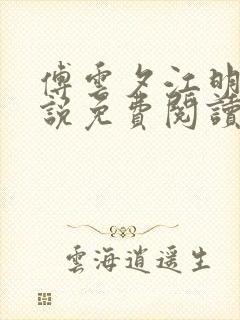 傅雲夕江明
說免費閱讀
雲海逍遥生